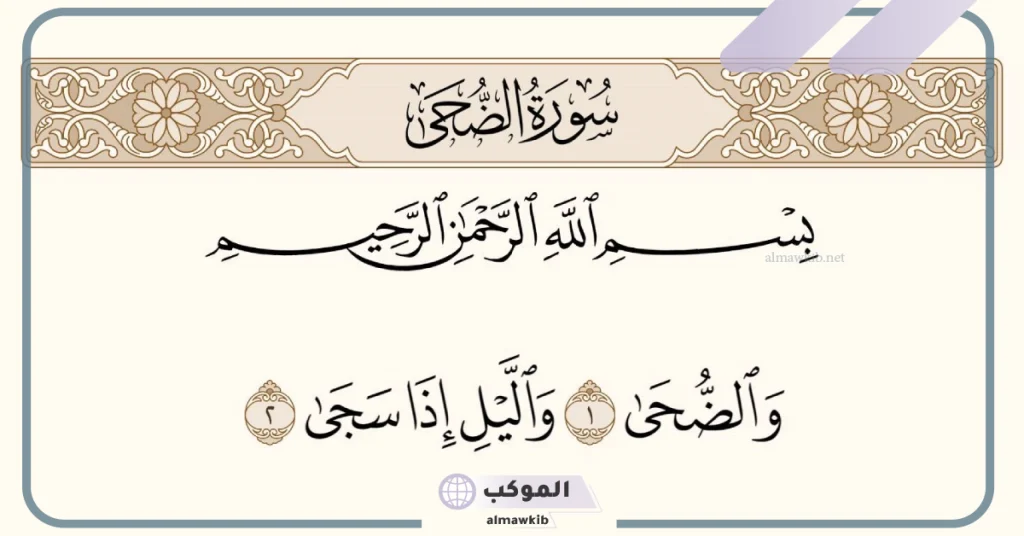 سُورَةُ الضُّحَىٰ
بِسْمِ ٱللَّهِ ٱلرَّحْمَٰنِ ٱلرَّحِيمِ
almawkib.net
وَٱلضُّحَىٰ ١ وَٱلَّيْلِ إِذَا سَجَىٰ ٢
الموكب
almawkib